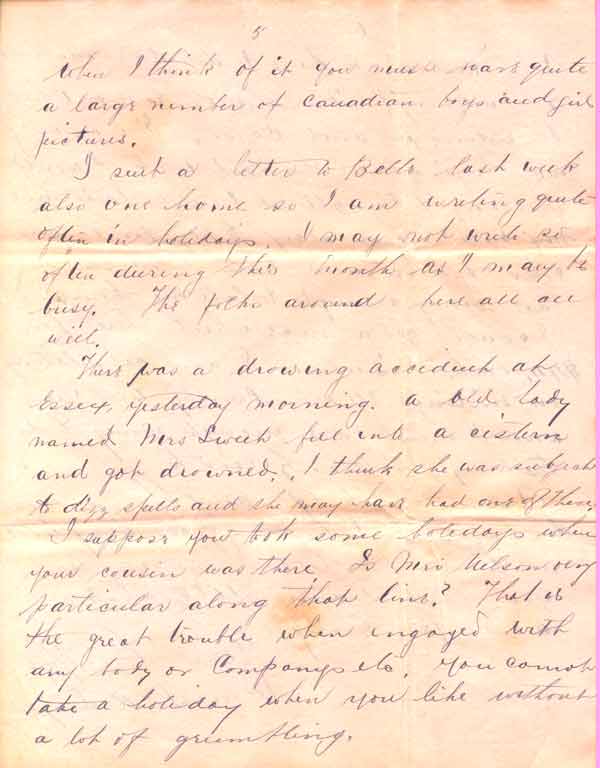 5
when I think of it you must have quite
a large number of Canadian boys and girl
pictures.
I sent a letter to Belle last week
also one home so I am writing quite
often in holidays. I may not write so
often during this month as I may be
busy. The folks around here all are
well.
There was a drowing accident at
Essex, yesterday morning. a old lady
named Mrs fell into a cistern
and got drowned. I think she was subject
to dizy spells and she may have had one of them.
I suppose you took some holidays when
your cousin was there Is Mrs Nelson very
particular along that line? That is
the great trouble when engaged with
any body or Companys etc. you cannot
take a holiday when you like without
a lot of grumbling.